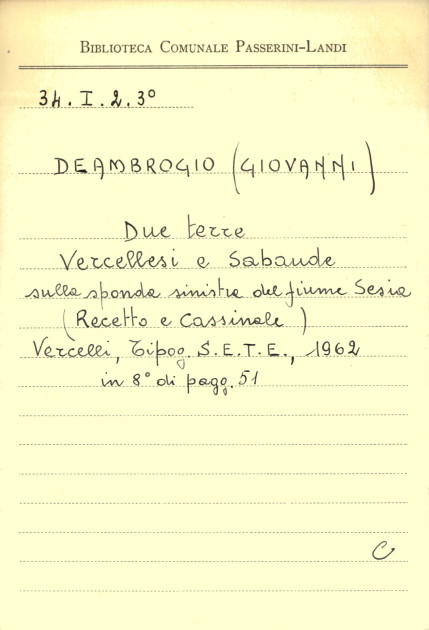 BIBLIOTECA COMUNALE PASSERINI-LANDI
34. I. 2. 3°
DEAMBROGIO (GIOVANNI)
Due terre
Vercellesi e Sabaude
sulla sponda sinistra del fiume Sesia
(Recetto e Cassinale)
Vercelli, Tipog. S.E.T.E., 1962
in 8° di pagg. 51
C